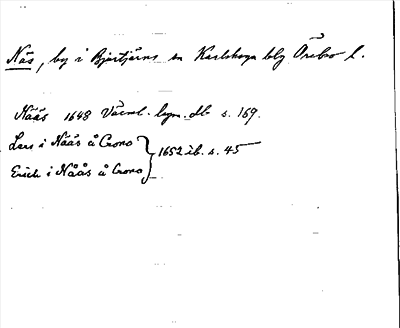 Näs, by i Bjurtjärns sn Karlskoga blg Örebro l.
Näås 1648 Värml. lagm. db s. 169.
Lars i Nåås å Crono
Erich i Nåås å Crono
1652 ib. s. 45